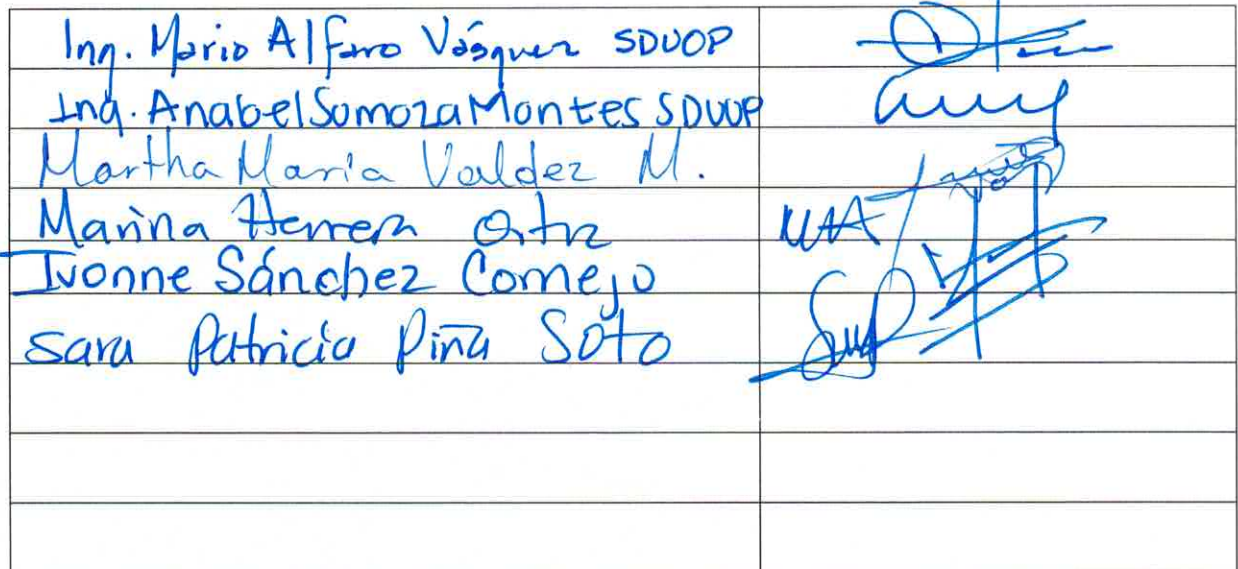 Ing. Mario Alfaro Vásquez SDUOP
Ing. Anabel Somoza Montes SDUOP
Martha María Valdez M.
Marina Herrera Ortiz
Ivonne Sánchez Cornejo
Sara Patricia Piña Soto